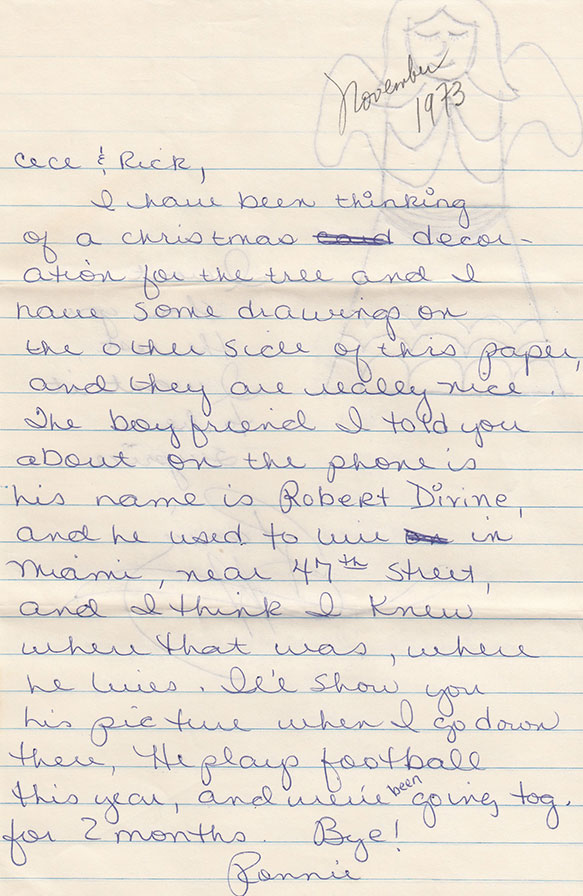 November
1973
Cece & Rick,
I have been thinking
of a christmas card decor-
ation for the tree and I
have some drawings on
the other side of this paper,
and they are really nice.
The boyfriend I told you
about on the phone is
his name is Robert Divine,
and he used to live on in
Miami, near 47th street,
and I think I knew
where that was, where
he lives. I'll show you
his picture when I go down
there, He plays football
this year, and we've been going tog.
for 2 months. Bye!
Ronnie